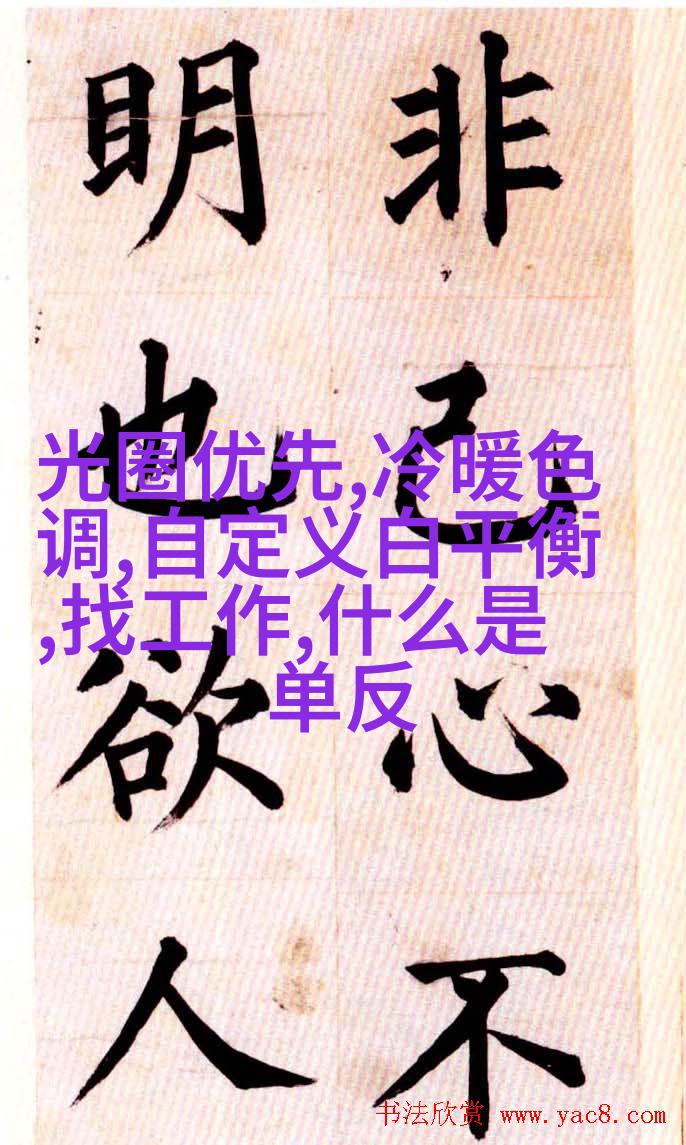 非己心不
明也欲人
光圈优先,冷暖色
调,自定义白平衡
,找工作,什么是
单反
书法欣赏 www.yac8.com